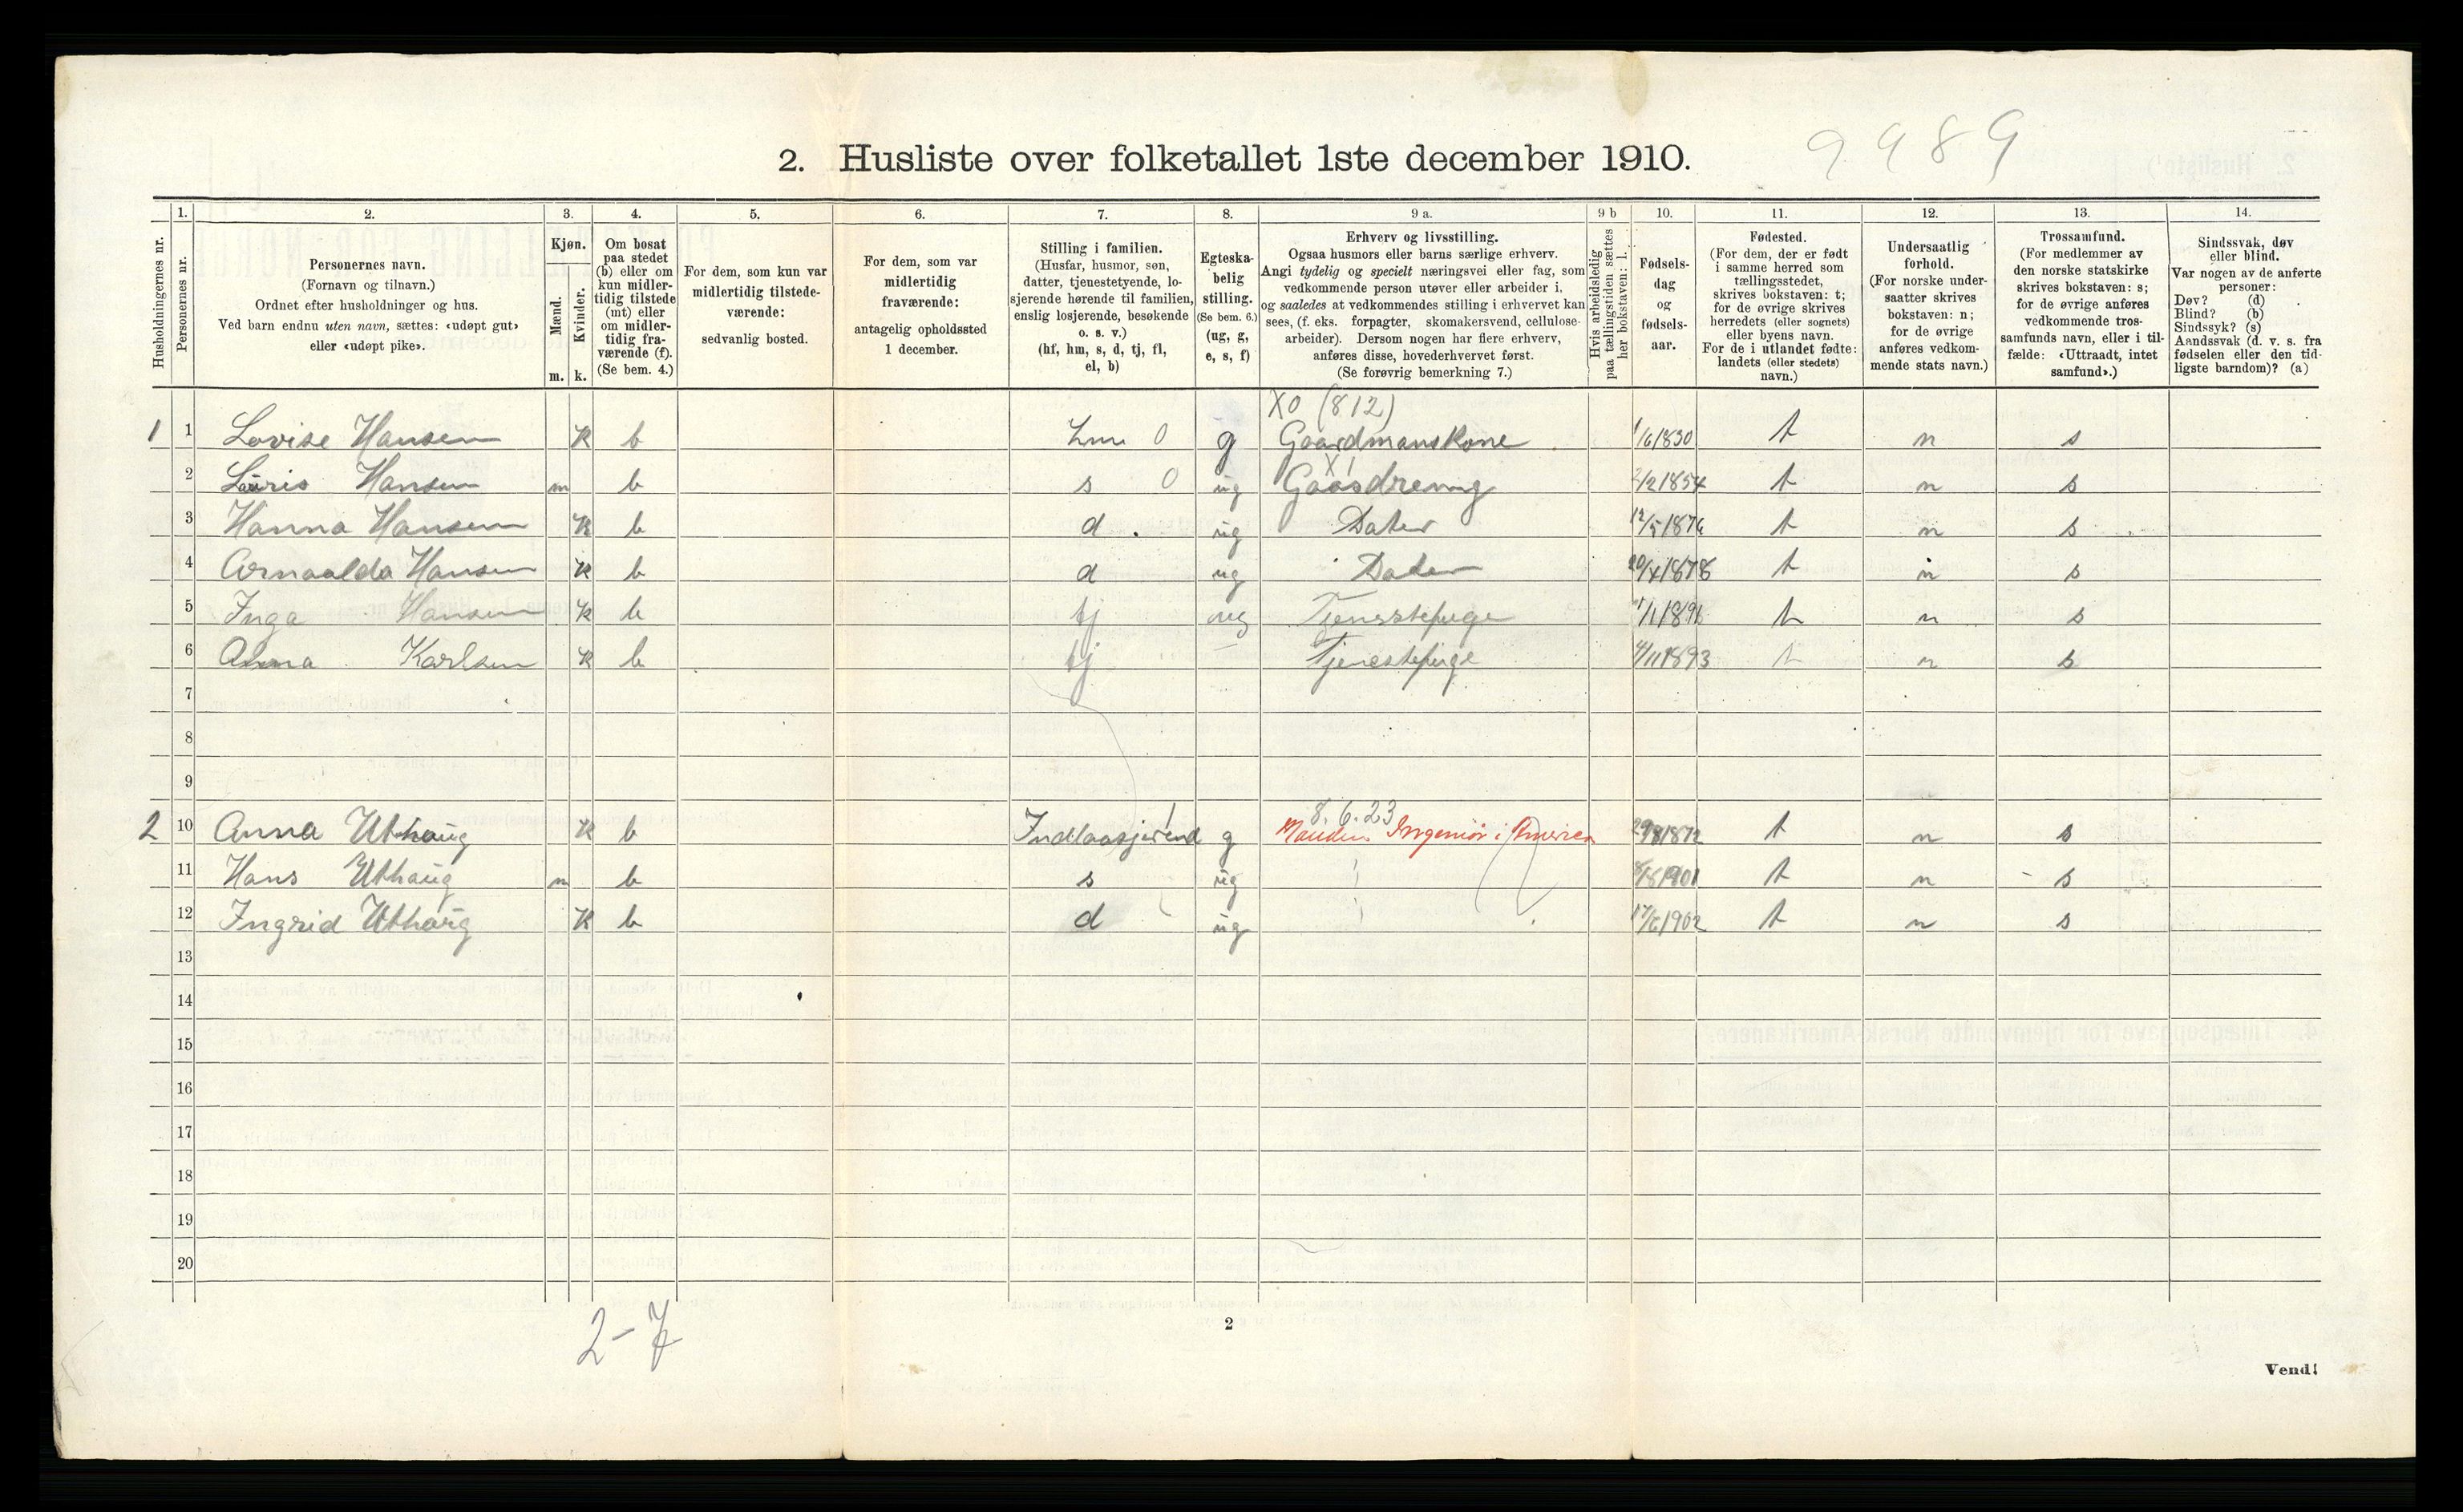 9989
2. Husliste over folketallet 1ste december 1910.
Husholdningernes nr.
1.
Personernes nr.
2.
Personernes navn.
(Fornavn og tilnavn.)
Ordnet efter husholdninger og hus.
Ved barn endnu uten navn, sættes: «udøpt gut»
eller «udøpt pike».
3.
Kjøn.
Mænd.
Kvinder.
m. k.
4.
Om bosat
paa stedet
(b) eller om
kun midler-
tidig tilstede
(mt) eller
om midler-
tidig fra-
værende (f).
(Se bem. 4.)
5.
For dem, som kun var
midlertidig tilstede-
værende:
sedvanlig bosted.
6.
For dem, som var
midlertidig
fraværende:
antagelig opholdssted
1 december.
7.
Stilling i familien.
(Husfar, husmor, søn,
datter, tjenestetyende, lo-
sjerende hørende til familien,
enslig losjerende, besøkende
o. s. v.)
(hf, hm, s, d, tj, fl,
el, b)
8.
Egteska-
belig
stilling.
(Se bem. 6.)
(ug, g,
e, s, f)
9 a.
Erhverv og livsstilling.
Ogsaa husmors eller barns særlige erhverv.
Angi tydelig og specielt næringsvei eller fag, som
vedkommende person utøver eller arbeider i,
og saaledes at vedkommendes stilling i erhvervet kan
sees, (f. eks. forpagter, skomakersvend, cellulose-
arbeider). Dersom nogen har flere erhverv,
anføres disse, hovederhvervet først.
(Se forøvrig bemerkning 7.)
9 b
Hvis arbeidsledig
paa tællingstiden sættes
her bokstaven: l.
10.
Fødsels-
dag
og
fødsels-
aar.
11.
Fødested.
(For dem, der er født
i samme herred som
tællingsstedet,
skrives bokstaven: t;
for de øvrige skrives
herredets (eller sognets)
eller byens navn.
For de i utlandet fødte:
landets (eller stedets)
navn.)
12.
Undersaatlig
forhold.
(For norske under-
saatter skrives
bokstaven: n;
for de øvrige
anføres vedkom-
mende stats navn.)
13.
Trossamfund.
(For medlemmer av
den norske statskirke
skrives bokstaven: s;
for de øvrige anføres
vedkommende tros-
samfunds navn, eller i til-
fælde: «Uttraadt, intet
samfund».)
14.
Sindssvak, døv
eller blind.
Var nogen av de anførte
personer:
Døv? (d)
Blind? (b)
Sindssyk? (s)
Aandssvak (d. v. s. fra
fødselen eller den tid-
ligste barndom)? (a)
X0 (812)
1 1 Lovise Hansen k b hm 0 g Gaardmanskone 1/6 1830 t n s
X1
2 Lauris Hansen m b s 0 ug Gaasdreng 2/2 1854 t n s
3 Hanna Hansen k b d ug Dater 12/5 1876 t n s
4 Arnaalda Hansen k b d ug Dater 20/4 1878 t n s
5 Inga Hansen k b tj ug Tjenestepige 1/11 1896 t n s
6 Anna Karlsen k b tj Tjenestepige 4/11 1893 t n s
7
8
9
8.6.23
2 10 Anna Uthaug k b Indlaasjerend g Manden Ingeniør i America 29/8 1872 t n s
11 Hans Uthaug m b s ug 8/8 1901 t n s
12 Ingrid Uthaug k b d ug 17/6 1902 t n s
13
14
15
16
17
18
19
20
2-7
2
Vend!